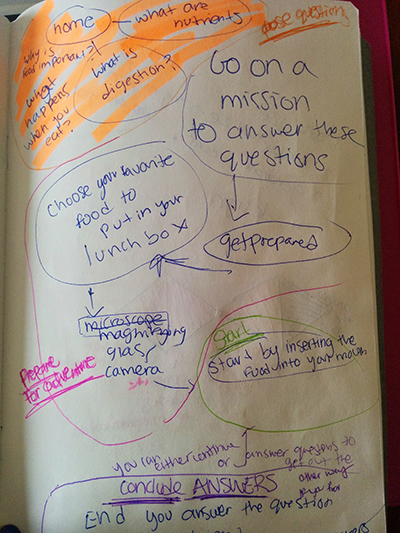 home
what are
nutrients
choose question
Why is
food important?
What is
digestion?
what
happens
when you
eat?
Go on a
mission
to answer these
questions
Choose your favorite
food to
put in your
lunch box
get prepared
microscope
magnifying
glass
camera
Prepare
for adventure
Start
Start by inserting the
food into your mouth
you can
either continue
or answer questions to
get out the
other way
CONCLUDE ANSWERS
End you answer the question